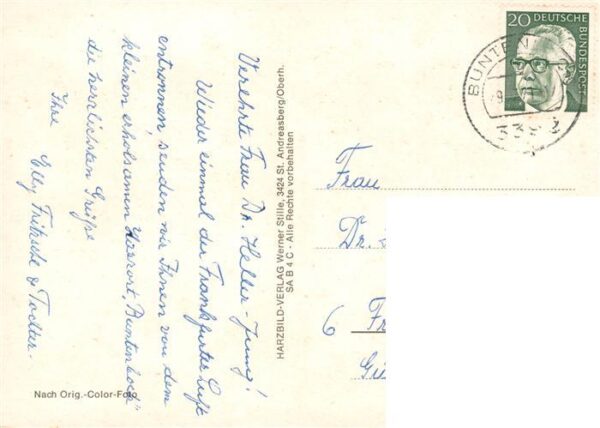 Verehrte Frau Dr. Heller-Jung!
Wieder einmal der Frankfurter Luft
entronnen, senden wir Ihnen von dem
kleinen erholsamen Harzort "Buntenbock"
die herzlichsten Grüße
Ihre
Elly Fritsche & Tochter.
Nach Orig.-Color-Foto
HARZBILD-VERLAG Werner Stille, 3424 St. Andreasberg/Oberh.
SA B 4 C - Alle Rechte vorbehalten
20 DEUTSCHE
BUNDESPOST
BUNTEN
Frau
Dr.
6 Fr